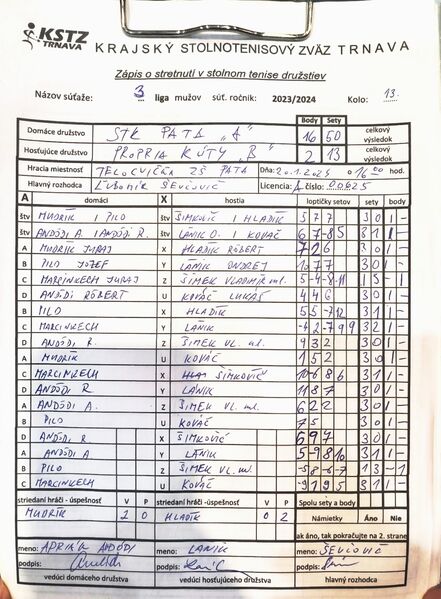 KSTZ
TRNAVA
KRAJSKÝ STOLNOTENISOVÝ ZVÄZ TRNAVA
Zápis o stretnutí v stolnom tenise družstiev
Názov súťaže: 3 liga mužov súť. ročník: 2023/2024 Kolo: 13.
Body Sety
Domáce družstvo STK PATA "A" 16 50 celkový výsledok
Hosťujúce družstvo PROPRIA KÚTY "B" 2 13 celkový výsledok
Hracia miestnosť TELOCVIČŇA ZŠ PATA Dňa: 20.1.2024 o 16 00 hod.
Hlavný rozhodca ĽUBOMÍR ŠEVČOVIČ Licencia A číslo:
A domáci X hostia loptičky setov sety body
štv MUDRÍK I PILO štv ŠIMKOVIČ I HLADÍK 5 7 7 3 0 1 -
štv ANDÓDI A. I ANDÓDI R. štv LÁNIK O. I KOVÁČ 6 7 -8 5 3 1 1 -
A MUDRÍK JURAJ X HLADÍK RÓBERT 7 2 6 3 0 1 -
B PILO JOZEF Y LÁNIK ONDREJ 10 7 7 3 0 1 -
C MARCINKECH JURAJ Z ŠIMEK VLADIMÍR ml. - 1
D ANDÓDI RÓBERT U KOVÁČ LUKÁŠ 4 4 6 3 0 1 -
B PILO X HLADÍK 5 5 -7 12 3 1 1 -
C MARCINKECH Y LÁNIK -4 2 -7 9 9 3 2 1 -
D ANDÓDI R. Z ŠIMEK VL. ml. 9 3 2 3 0 1 -
A MUDRÍK U KOVÁČ 1 5 2 3 0 1 -
C MARCINKECH X ŠIMKOVIČ 10 -6 8 6 3 1 1 -
D ANDÓDI R Y LÁNIK 11 8 7 3 0 1 -
A ANDÓDI A. Z ŠIMEK VL. ml. 6 2 2 3 0 1 -
B PILO U KOVÁČ 7 5 3 0 1 -
D ANDÓDI R X ŠIMKOVIČ 6 9 7 3 0 1 -
A ANDÓDI A Y LÁNIK 5 -9 8 10 3 1 1 -
B PILO Z ŠIMEK VL. ml. -5 8 -6 -7 1 3 - 1
C MARCINKECH U KOVÁČ -9 1 9 5 3 1 1 -
striedaní hráči - úspešnosť V P striedaní hráči -úspešnosť V P Spolu sety a body
MUDRÍK 2 0 HLADÍK 0 2 Námietky Áno Nie
ak áno, tak pokračujte na 2. strane
meno: ANDÓDI meno: LÁNIK meno: ŠEVČOVIČ
podpis: podpis: podpis:
vedúci domáceho družstva vedúci hosťujúceho družstva hlavný rozhodca